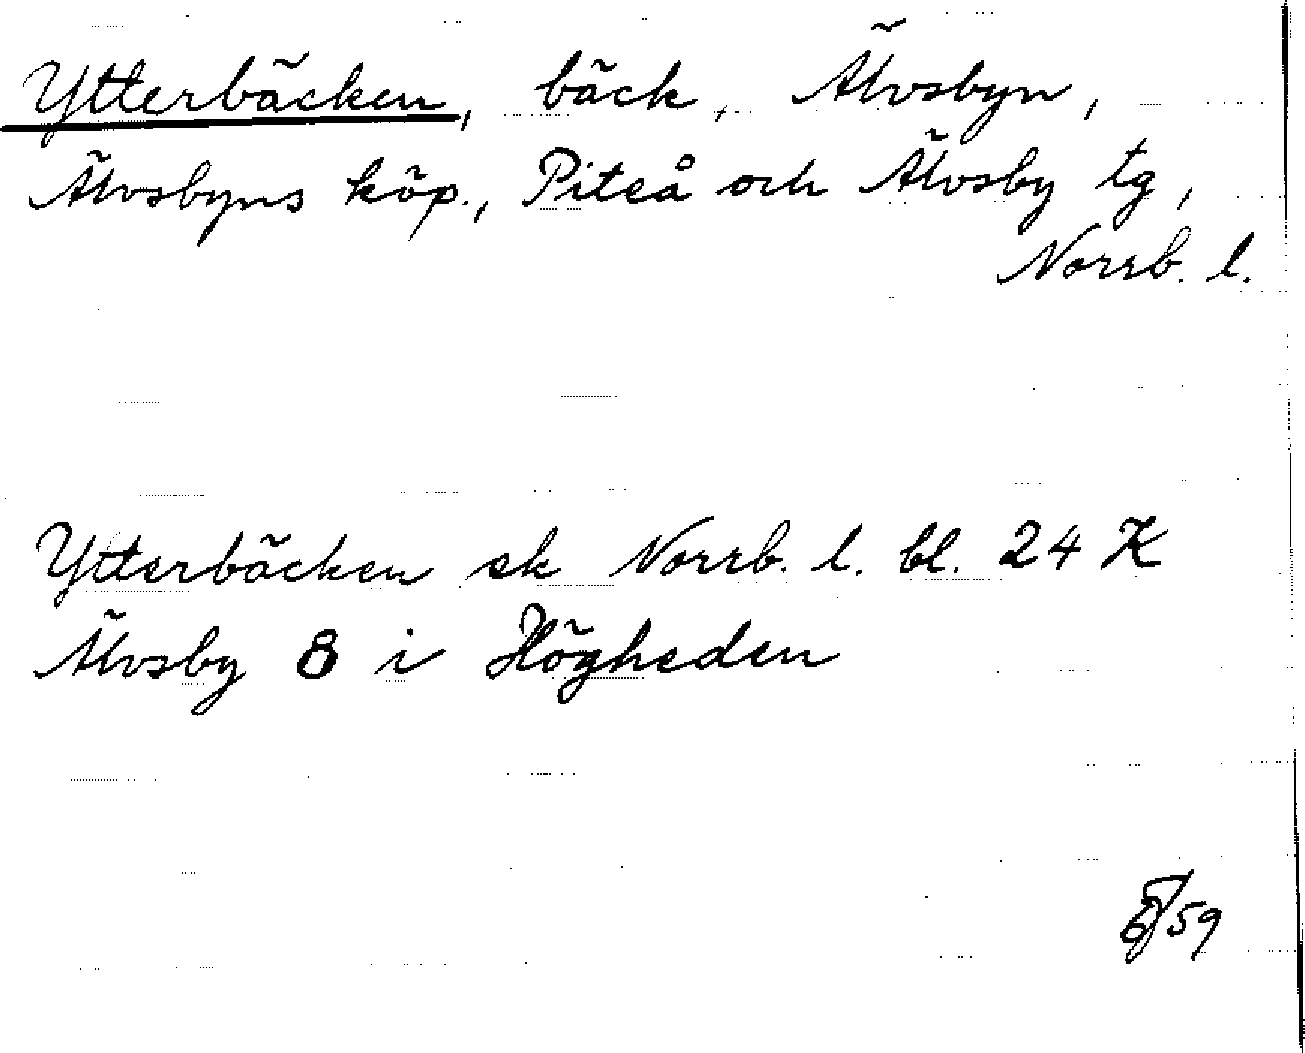 Ytterbäcken, bäck, Älvsbyn,
Älvsbyns köp., Piteå och Älvsby tg,
Norrb. l.
Ytterbäcken ek Norrb. l. bl. 24 K
Älvsby 8 i Högheden
59